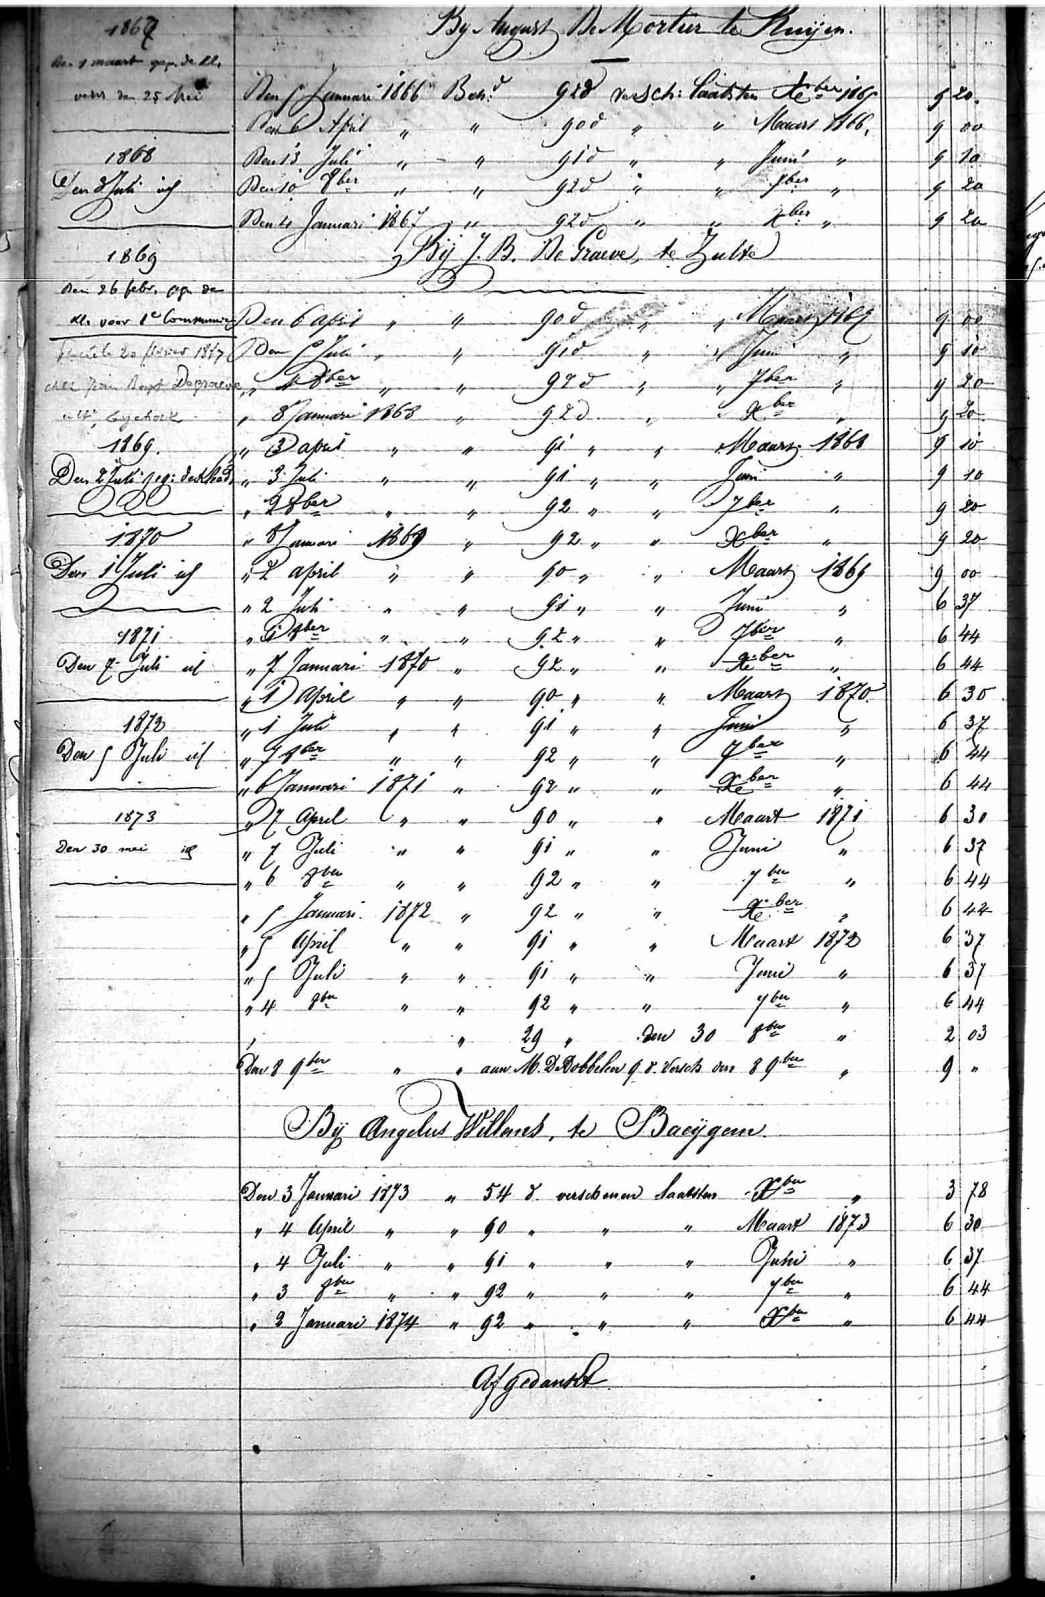 By August De Mortier te Kuijen.
1867
Den 1 maart gep. de kl.
voor den 25 Mei
Den 5 Januari 1866 Beh.d 92d versch: laatsten Xber 1865 9 20.
Den 6 April " " 90d " " Maart 1866, 9 00
1868
Den 13 Juli " " 91d " " Juni " 9 10
Den 3 Juli id
Den 10 8ber " " 92d " " 7ber " 9 20
Den 4 Januari 1867 " 92d " " Xber " 9 20
1869
Bij J. B. De Graeve, te Zulte
Den 26 febr. gep. de
kl. voor 1e Communie
Den 6 april " " 90d " " Maart 1867 9 00
20 février 1867
Den 5 Juli " " 91d " " Juni " 9 10
chez Jean Bapt Degraeve
" 4 8ber " " 92d " " 7ber " 9 20
" 8 Januari 1868 " 92d " Xber " 9 20
1869.
" 3 april " " 91 " " Maart 1868 9 10
Den 2 Juli gep:
" 3 Juli " " 91 " " Juni " 9 10
" 2 8ber " " 92 " " 7ber " 9 20
1870
" 8 Januari 1869 " 92 " " Xber " 9 20
Den 1 Juli id
" 2 april " " 90 " " Maart 1869 9 00
" 2 Juli " " 91 " " Juni " 6 37
1871
" 8ber " " 92 " " 7ber " 6 44
Den 7 Juli id
" 7 Januari 1870 " 92 " " Xber " 6 44
" 1 April " " 90 " " Maart 1870 6 30
1872
" 1 Juli " " 91 " " Juni " 6 37
Den 5 Juli id
" 7 8ber " " 92 " " 7ber " 6 44
" 6 Januari 1871 " 92 " " Xber " 6 44
1873
" 7 April " " 90 " " Maart 1871 6 30
Den 30 mei id
" 7 Juli " " 91 " " Juni " 6 37
" 6 8ber " " 92 " " 7ber " 6 44
" 5 Januari 1872 " 92 " " Xber " 6 44
" 5 April " " 91 " " Maart 1872 6 37
" 5 Juli " " 91 " " Juni " 6 37
" 4 8ber " " 92 " " 7ber " 6 44
" " 29 " den 30 8ber " 2 03
Den 8 9ber " " aan M. De Dobbelen 9 d. versch den 8 9ber " 9 "
Bij Angelus Willems, te Baeijgem.
Den 3 Januari 1873 " 54 d. verschenen laatsten Xber " 3 78
" 4 April " " 90 " " " Maart 1873 6 30
" 4 Juli " " 91 " " " Juni " 6 37
" 3 8ber " " 92 " " " 7ber " 6 44
" 2 Januari 1874 " 92 " " " Xber " 6 44
Afgedankt.